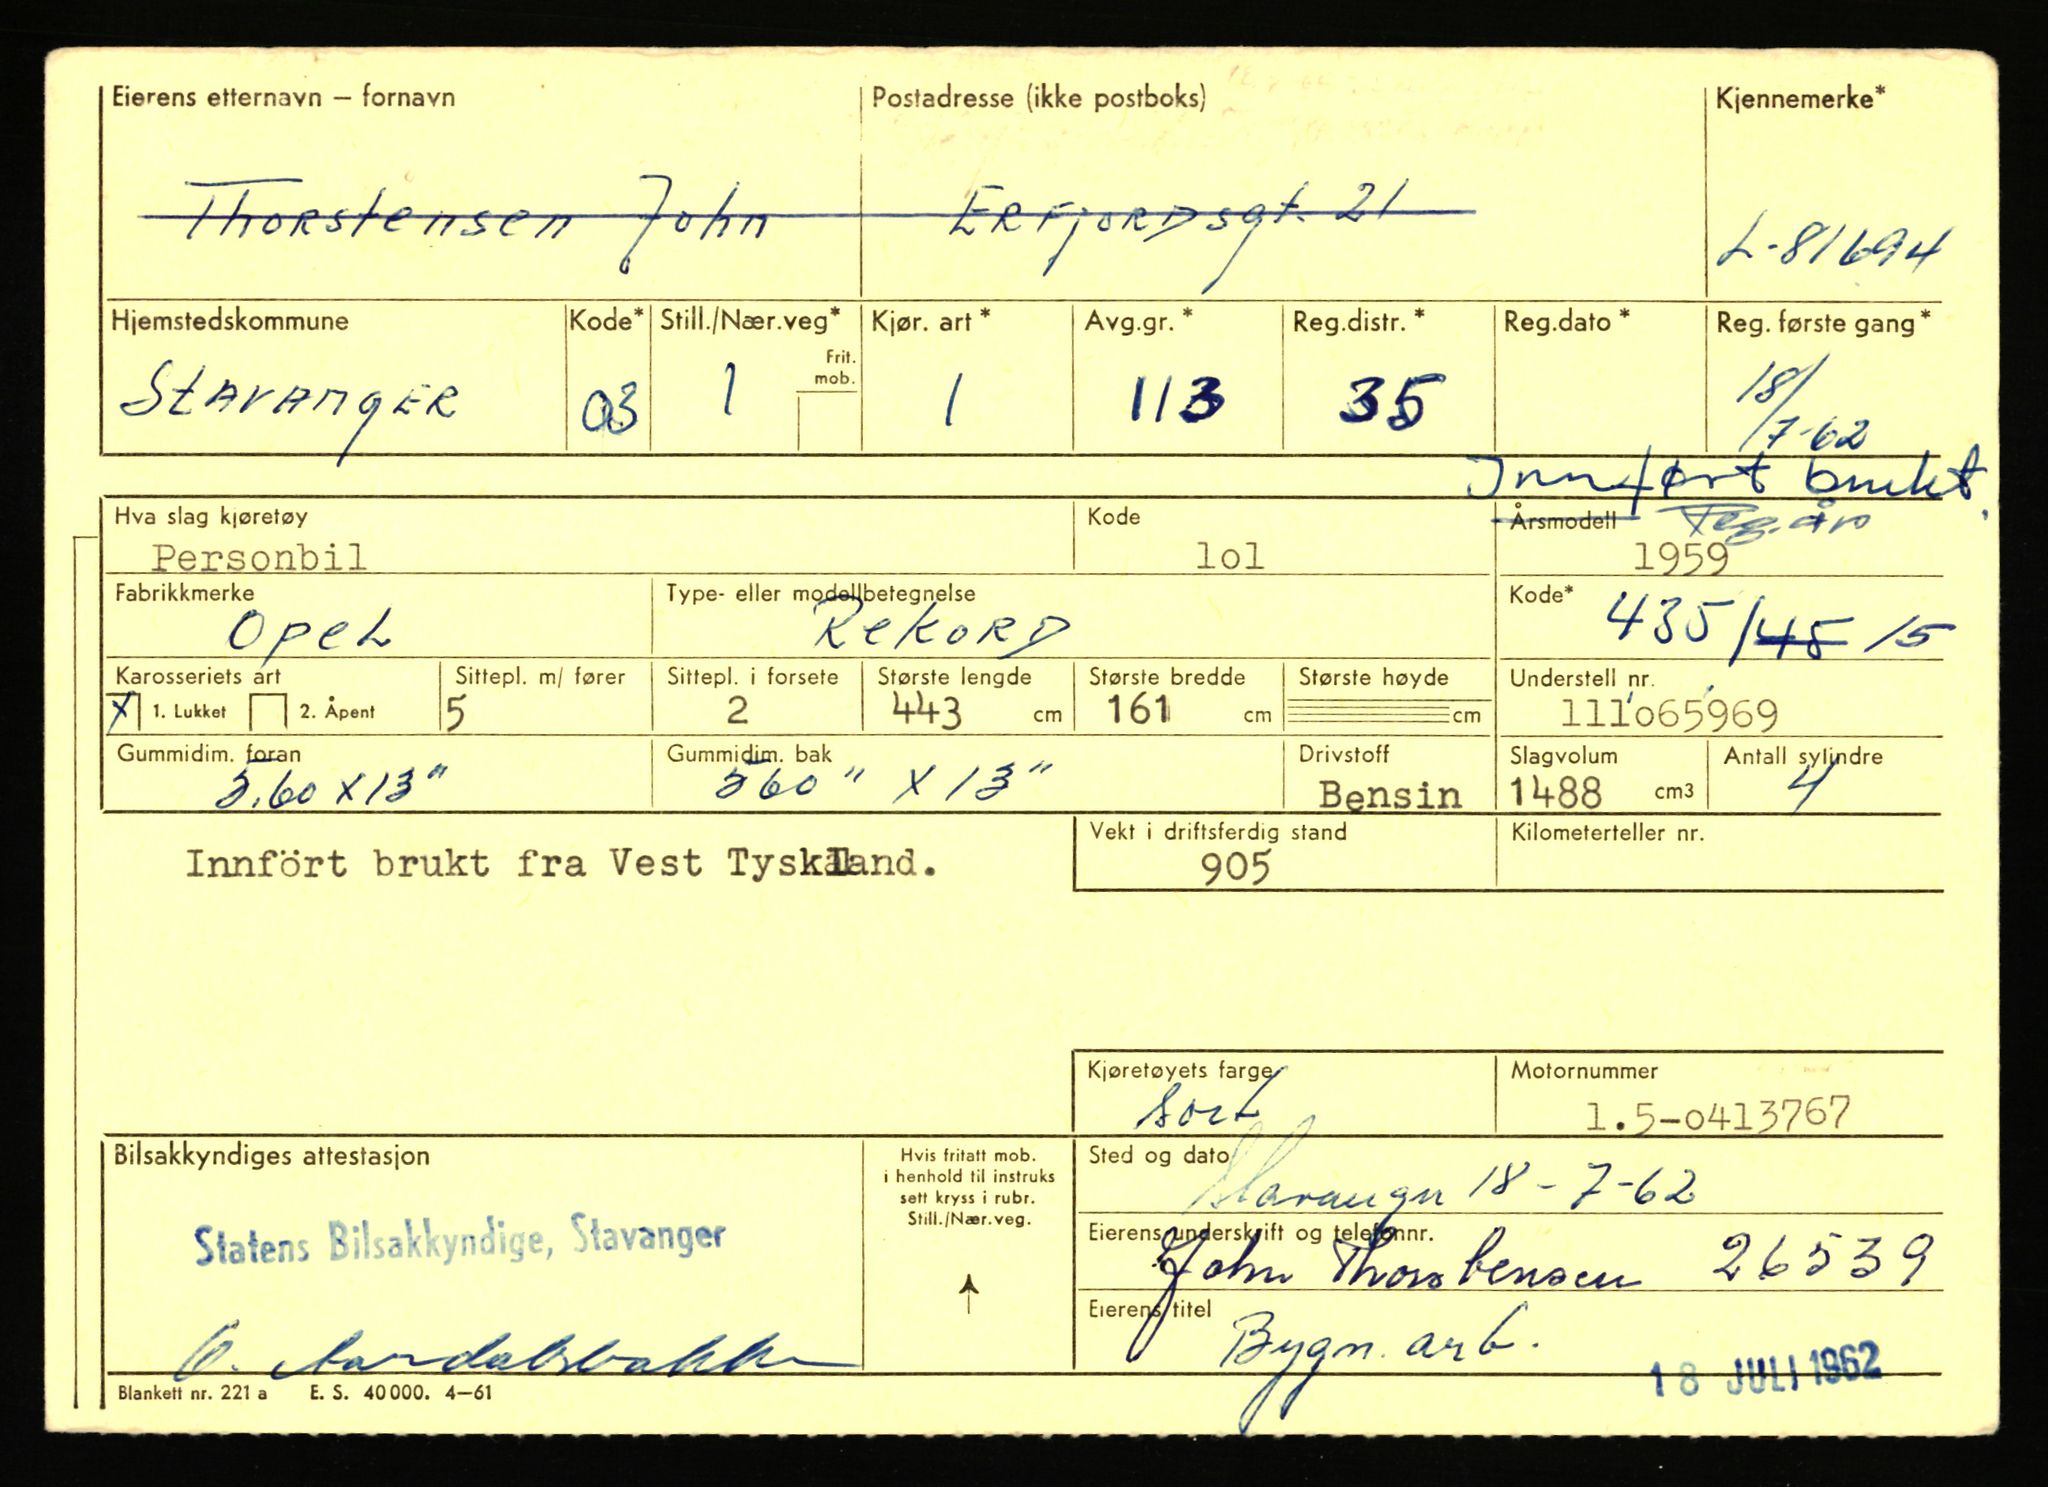 Eierens etternavn – fornavn
Postadresse (ikke postboks)
Kjennemerke*
Thorstensen John
Erfjordsgt. 21
L-81694
Hjemstedskommune
Kode*
Still./Nær.veg*
Frit. mob.
Kjør. art *
Avg.gr. *
Reg.distr. *
Reg.dato *
Reg. første gang *
Stavanger
03
1
1
113
35
18/7-62
Innført brukt.
Hva slag kjøretøy
Personbil
Kode
lol
Årsmodell Reg.år
1959
Fabrikkmerke
Opel
Type- eller modellbetegnelse
Rekord
Kode*
435/45 15
Karosseriets art
X 1. Lukket
2. Åpent
Sittepl. m/ fører
5
Sittepl. i forsete
2
Største lengde
443 cm
Største bredde
161 cm
Største høyde
cm
Understell nr.
111o65969
Gummidim. foran
5.60 X 13"
Gummidim. bak
560" X 13"
Drivstoff
Bensin
Slagvolum
1488 cm3
Antall sylindre
4
Innfört brukt fra Vest Tyskland.
Vekt i driftsferdig stand
905
Kilometerteller nr.
Kjøretøyets farge
sort
Motornummer
1.5-o413767
Bilsakkyndiges attestasjon
Statens Bilsakkyndige, Stavanger
Hvis fritatt mob.
i henhold til instruks
sett kryss i rubr.
Still./Nær.veg.
Sted og dato
Stavanger 18-7-62
Eierens underskrift og telefonnr.
John Thorstensen 26539
Eierens titel
Bygn. arb.
18 JULI 1962
Blankett nr. 221 a E. S. 40 000. 4–61